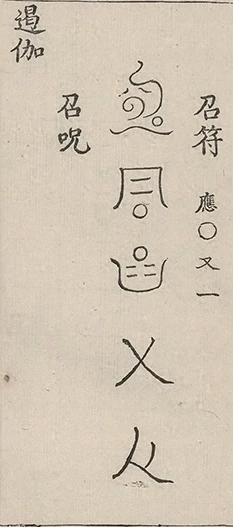 召符 應〇又一
召呪
遏伽